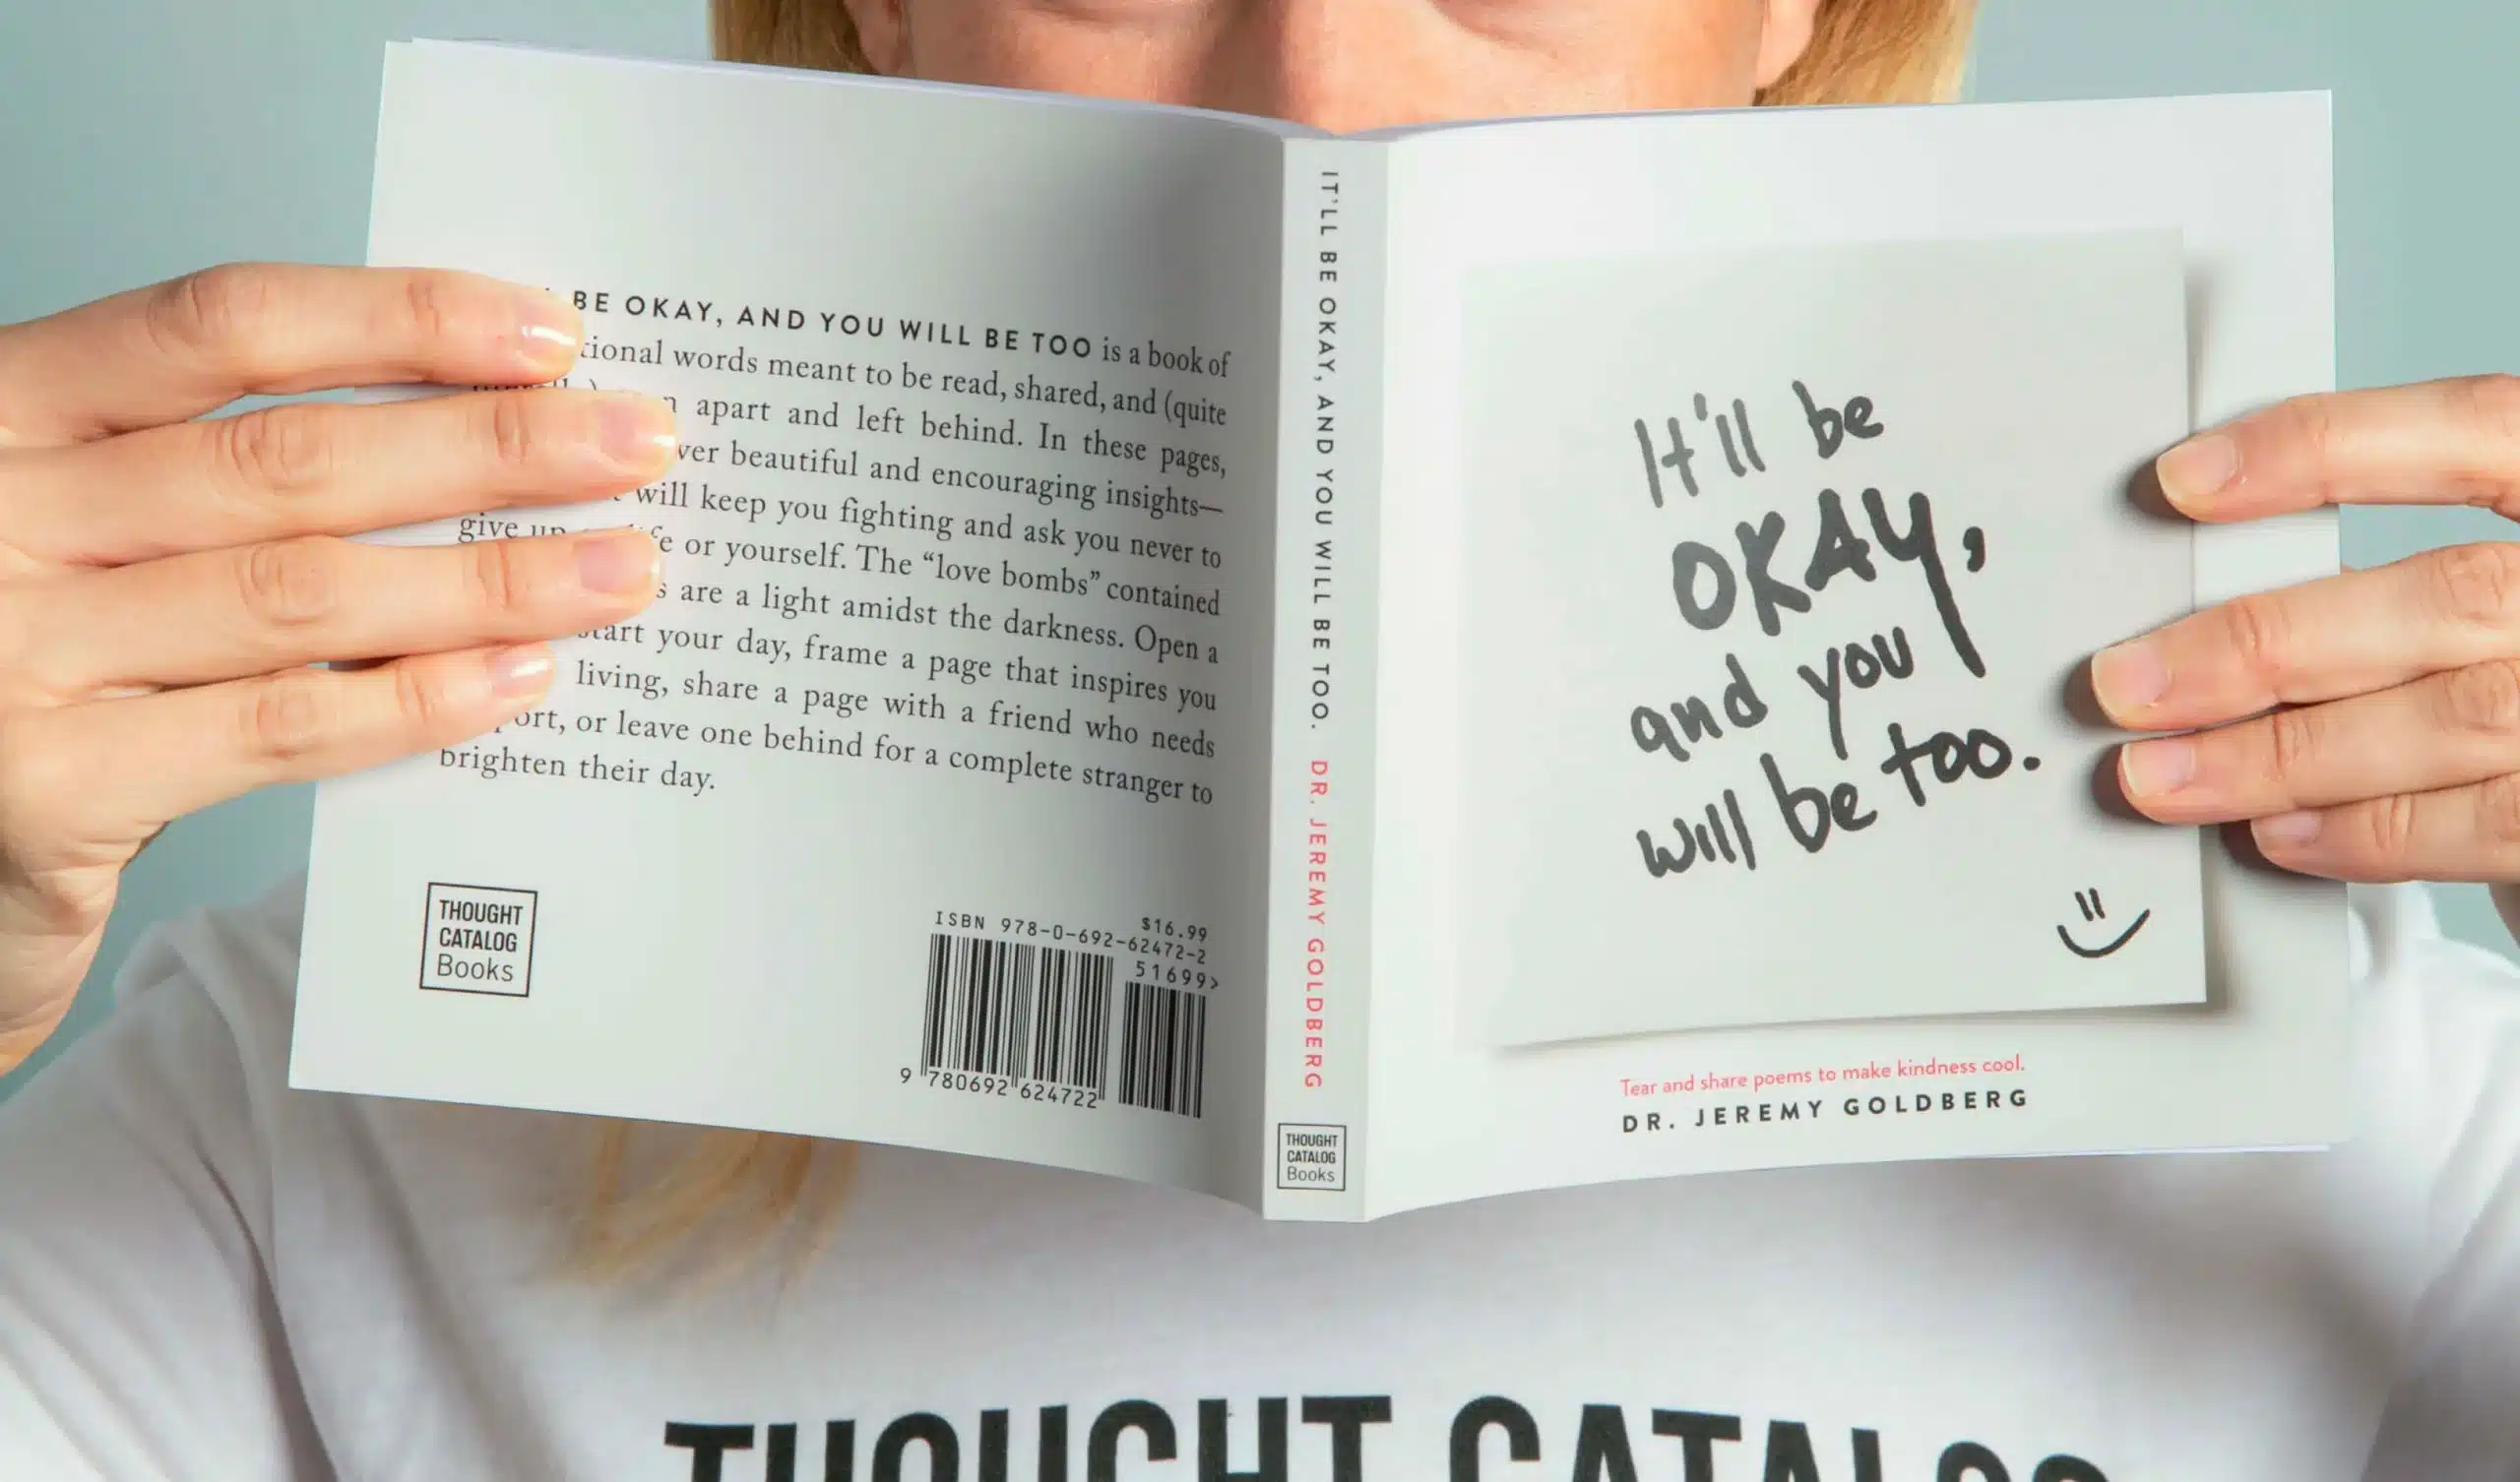 BE OKAY, AND YOU WILL BE TOO is a book of
words meant to be read, shared, and (quite
apart and left behind. In these pages,
beautiful and encouraging insights—
will keep you fighting and ask you never to
give or yourself. The “love bombs” contained
are a light amidst the darkness. Open a
your day, frame a page that inspires you
living, share a page with a friend who needs
or leave one behind for a complete stranger to
brighten their day.
THOUGHT
CATALOG
Books
$16.99
ISBN 978-0-692-62472-2
51699>
9 780692 624722
IT'LL BE OKAY, AND YOU WILL BE TOO. DR. JEREMY GOLDBERG
THOUGHT
CATALOG
Books
It'll be
OKAY,
and you
will be too.
Tear and share poems to make kindness cool.
DR. JEREMY GOLDBERG
THOUGHT CATALOG